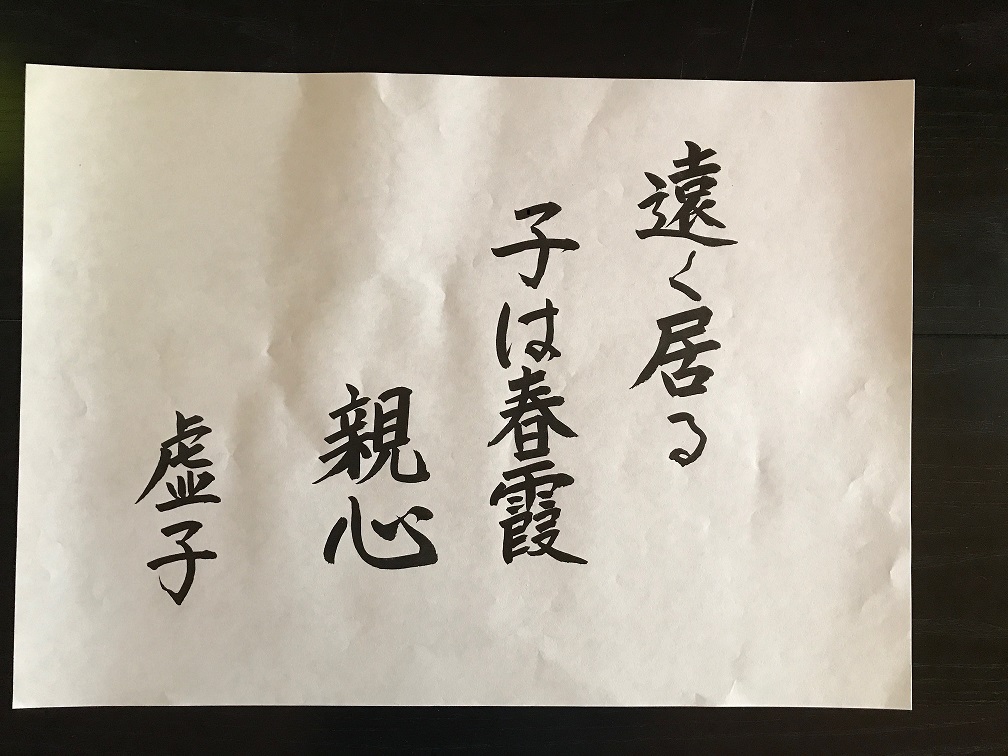 遠く居る
子は春霞
親心
虚子